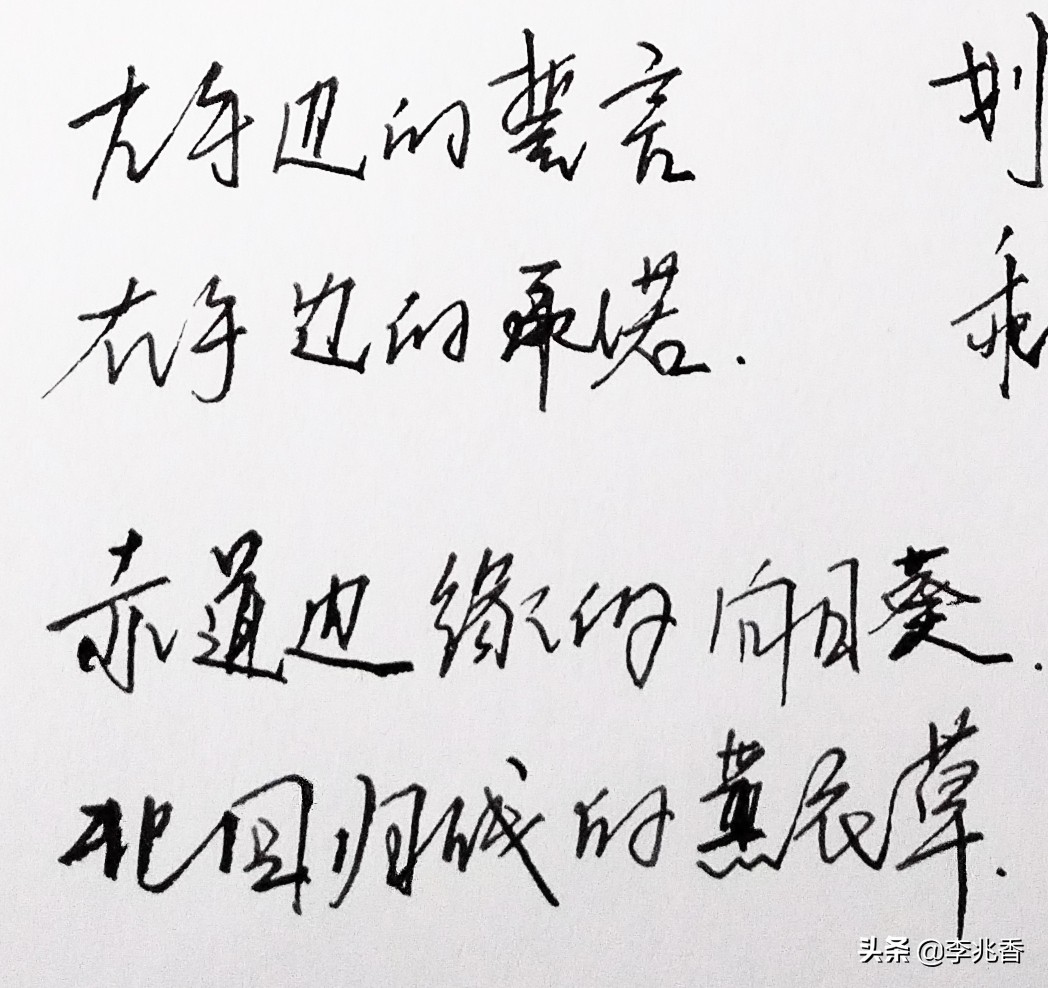 左手边的誓言
右手边的承诺.
赤道边缘的向日葵.
北回归线的薰衣草.
划
乖
头条 @李兆香